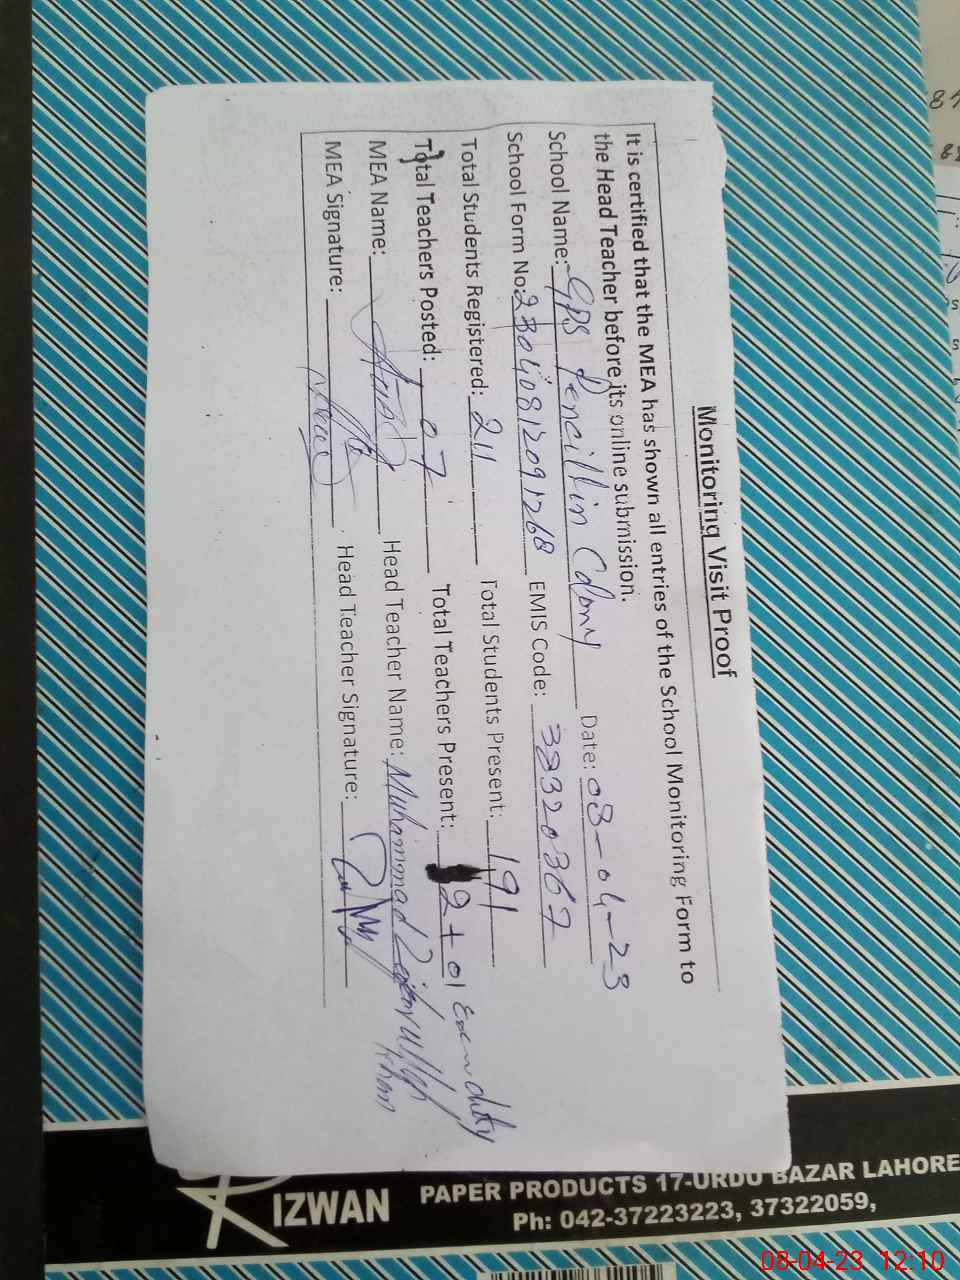 Monitoring Visit Proof
It is certified that the MEA has shown all entries of the School Monitoring Form to
the Head Teacher before its online submission.
School Name: GPS Pencillin Colony Date: 08-04-23
School Form No: 23040812091268 EMIS Code: 38320367
Total Students Registered: 211 Total Students Present: 191
Total Teachers Posted: 07 Total Teachers Present: 2+01 Exam duty
MEA Name: Head Teacher Name: Muhammad Khan
MEA Signature: Head Teacher Signature:
RIZWAN PAPER PRODUCTS 17-URDU BAZAR LAHORE
Ph: 042-37223223, 37322059,
08-04-23 12:10